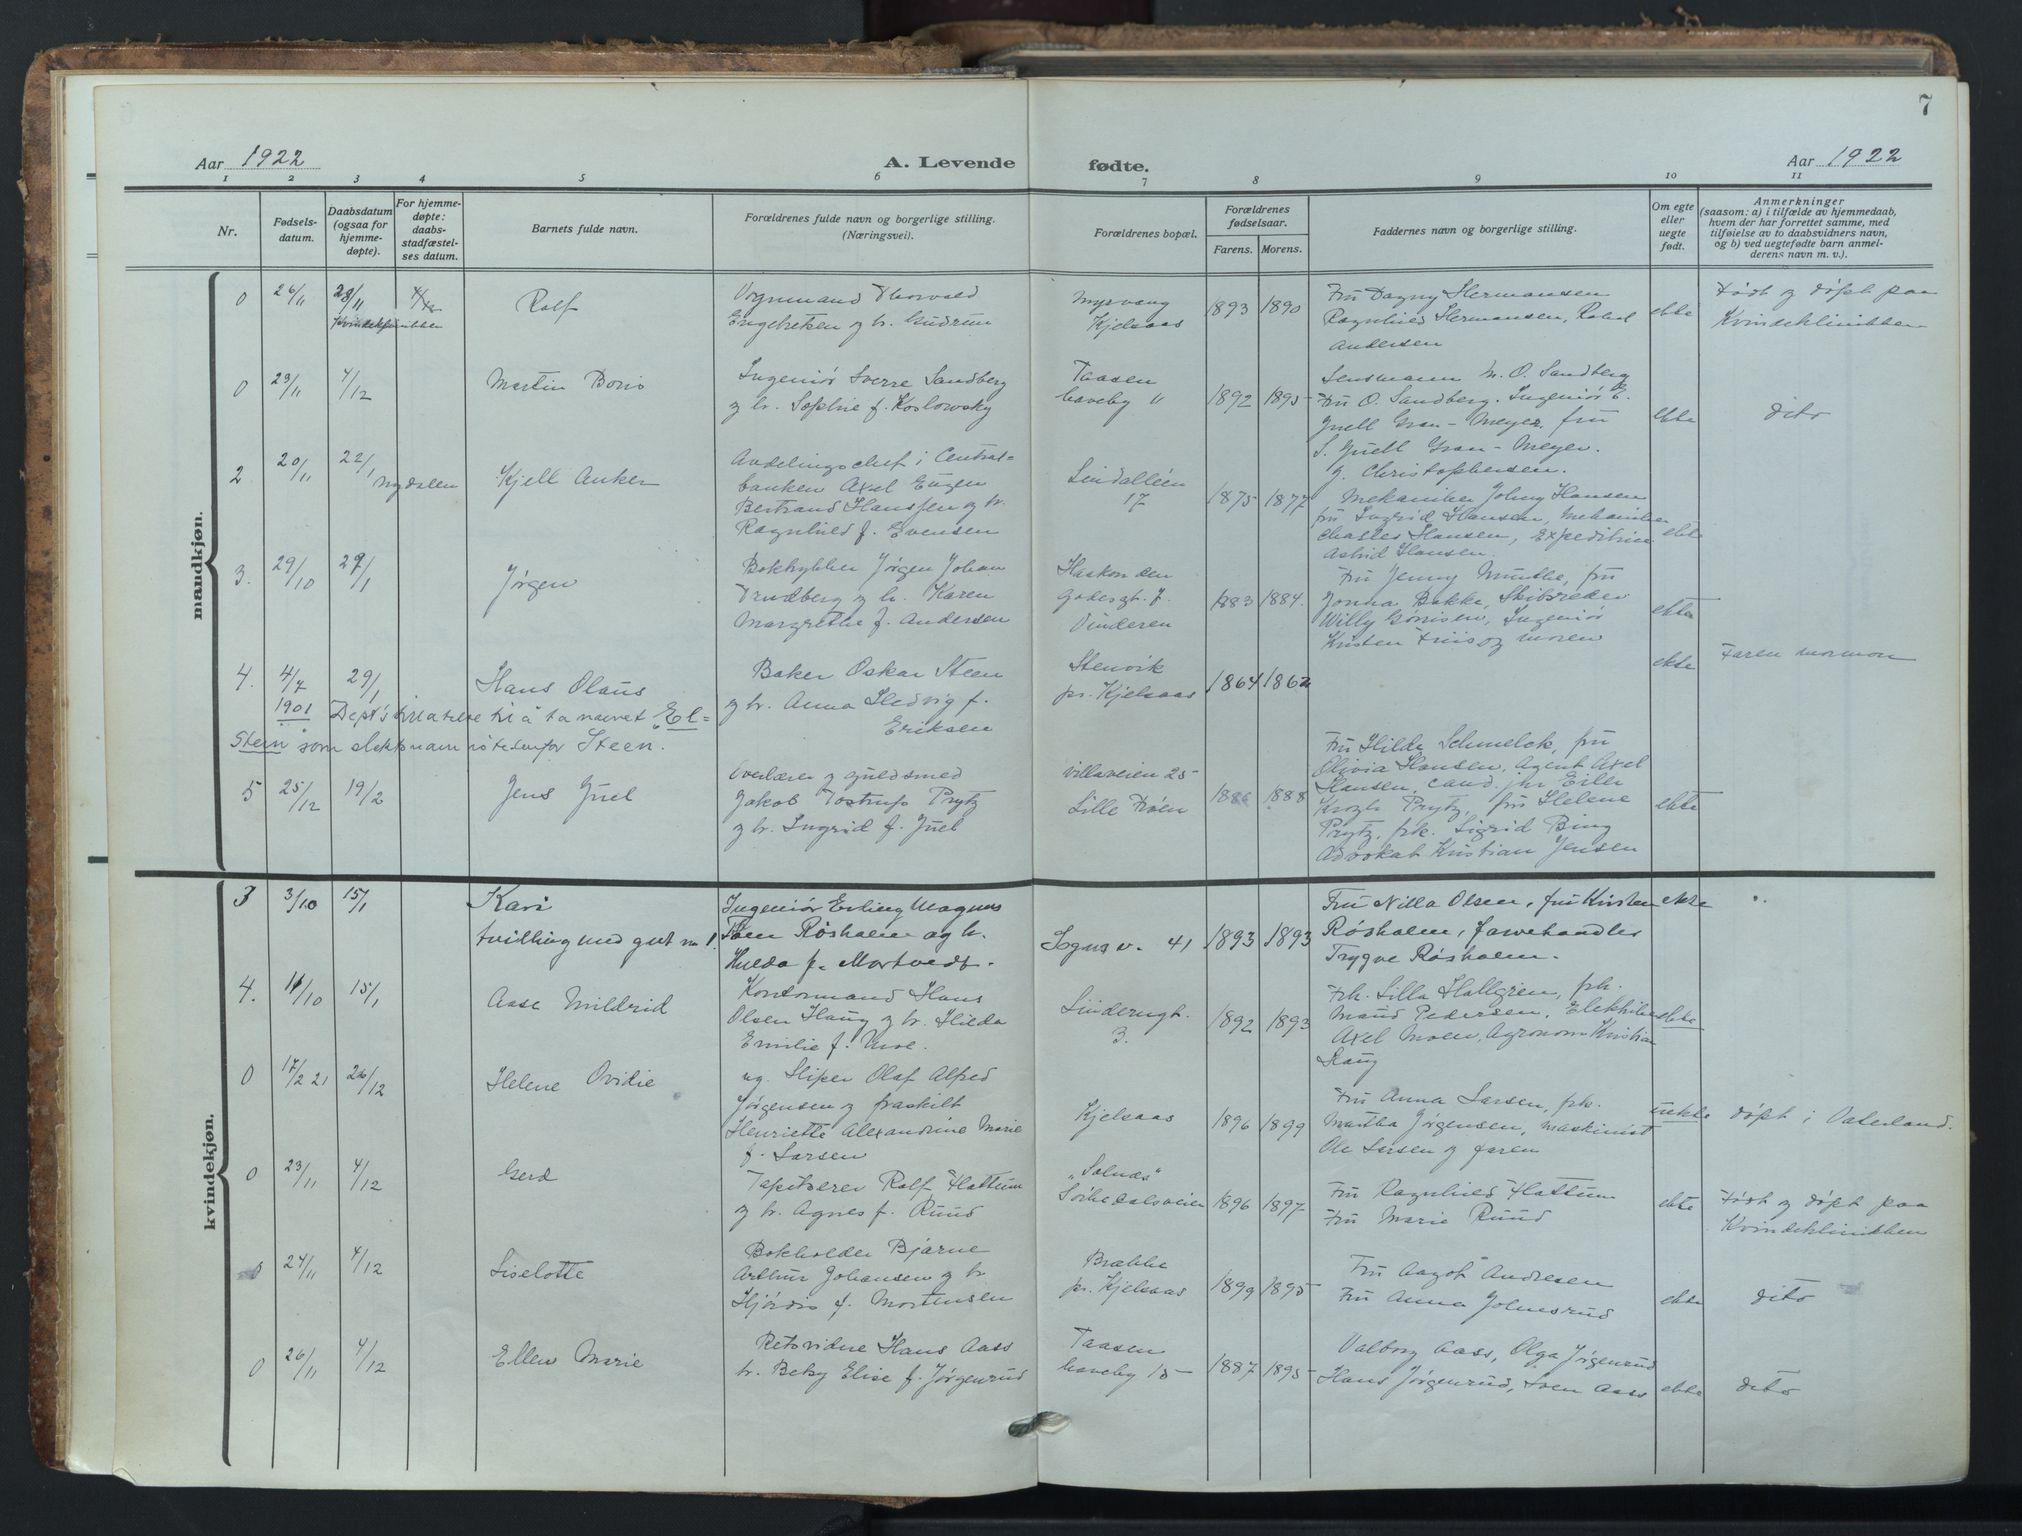 7
Aar 1922
A. Levende fødte.
Aar 1922
1 2 3 4 5 6 7 8 9 10 11
Nr.
Fødsels-
datum.
Daabsdatum
(ogsaa for
hjemme-
døpte).
For hjemme-
døpte:
daabs-
stadfæstel-
ses datum.
Barnets fulde navn.
Forældrenes fulde navn og borgerlige stilling.
(Næringsvei).
Forældrenes bopæl.
Forældrenes
fødselsaar.
Farens. Morens.
Faddernes navn og borgerlige stilling.
Om egte
eller
uegte
født.
Anmerkninger
(saasom: a) i tilfælde av hjemmedaab,
hvem der har forrettet samme, med
tilføielse av to daabsvidners navn,
og b) ved uegtefødte barn anmel-
derens navn m. v.).
mandkjøn.
0 26/11 28/11
Rolf
Vognmand Thorvald
Engebretsen og h. Gudrun
Myrvang
Kjelsaas
1893 1890
Fru Dagny Hermansen
Ragnhild Hermansen,
Andersen
ekte
Født og døpt paa
Kvindeklinikken
0 23/11 4/12
Martin Boris
Ingeniør Sverre Sandberg
og h. Sophie f. Koslowsky
Taasen
haveby 11
1892 1895
Lensmann M. O. Sandberg
Fru O. Sandberg. Ingeniør E.
Juell Gran-Meyer, fru
S. Juell Gran-Meyer.
f. Christophersen.
ekte
dito
2 20/11 22/1 Nydalen
Kjell Anker
Avdelingschef i Central-
banken Axel Eugen
Bertrand Hanssen og h.
Ragnhild f. Evensen
Lindalléen
17
1875 1877
Mekaniker Johny Hansen
fru Ingrid Hansen, Mekaniker
Charles Hansen, Expeditrice
Astrid Hansen.
ekte
3. 29/10 29/1
Jørgen
Boktrykker Jørgen Johan
Trudberg og h. Karen
Margrethe f. Andersen
Haakon den
Godesgt. 7.
Vinderen
1883 1884.
Fru Jenny Munthe, fru
Jonna Bakke, Skibsreder
Willy Gørrisen, Ingeniør
Kristen Friis og moren
ekte
4. 4/7 1901 29/1
Hans Olaus
Baker Oskar Steen
og h. Anna Hedvig f.
Eriksen
Stenvik
pr. Kjelsaas
1864 1862
ekte
Faren mormon
Dept's tillatelse til å ta navnet El-
Steen som slektsnavn istedenfor Steen.
5 25/12 19/2
Jens Juel
Overlærer og guldsmed
Jakob Tostrup Prytz
og h. Ingrid f. Juel
Villaveien 25
Lille Frøen
1886 1888
Fru Hilda Schmelck, fru
Olivia Hansen, Agent Axel
Hansen, cand. jur Eiler
Krogh Prytz, fru Helene
Prytz, frk. Sigrid Bing
Advokat Kristian Jensen
ekte
kvindekjøn.
3 3/10 15/1
Kari
tvilling med gut nr 1.
Ingeniør Erling Magnus
Røsholm og h.
Hulda f. Mortvedt.
Sognsv. 41
1893 1893
Fru Nilla Olsen, fru Kirsten
Røsholm, farvehandler
Trygve Røsholm.
ekte
4. 11/10 15/1
Aase Mildrid
Kontormand Hans
Olsen Haug og h. Hilda
Emilie f. Moe.
Linderngt.
3.
1892 1893
Frk. Lilla Hallgren, frk.
Maud Pedersen, Elektriker
Axel Moen, Agronom Kristian
Haug
ekte
0 17/2 21 26/12
Helene Ovidie
ug. Sliper Olaf Alfred
Jørgensen og fraskilt
Henriette Alexandrine Marie
f. Larsen
Kjelsaas
1896 1899
Fru Anna Larsen, frk.
Martha Jørgensen, maskinist
Ole Larsen og faren
uekte
døpt i Vaterland.
0 23/11 4/12
Gerd
Tapetserer Rolf Flattum
og h. Agnes f. Ruud
„Solnæs"
Sørkedalsveien
1896 1897
Fru Ragnhild Flattum
Fru Marie Ruud
ekte
Født og døpt paa
Kvindeklinikken
0 24/11 4/12
Liselotte
Bokholder Bjarne
Arthur Johansen og h.
Hjørdis f. Mortensen
Brække
pr. Kjelsaas
1899 1895
Fru Aagot Andresen
Fru Anna Johnsrud
ekte
dito
0 26/11 4/12
Ellen Marie
Revisor Hans Aass
h. Betsy Elise f. Jørgenrud
Taasen
haveby 15
1887 1895
Valborg Aass, Olga Jørgenrud
Hans Jørgenrud, Sven Aass
ekte
dito